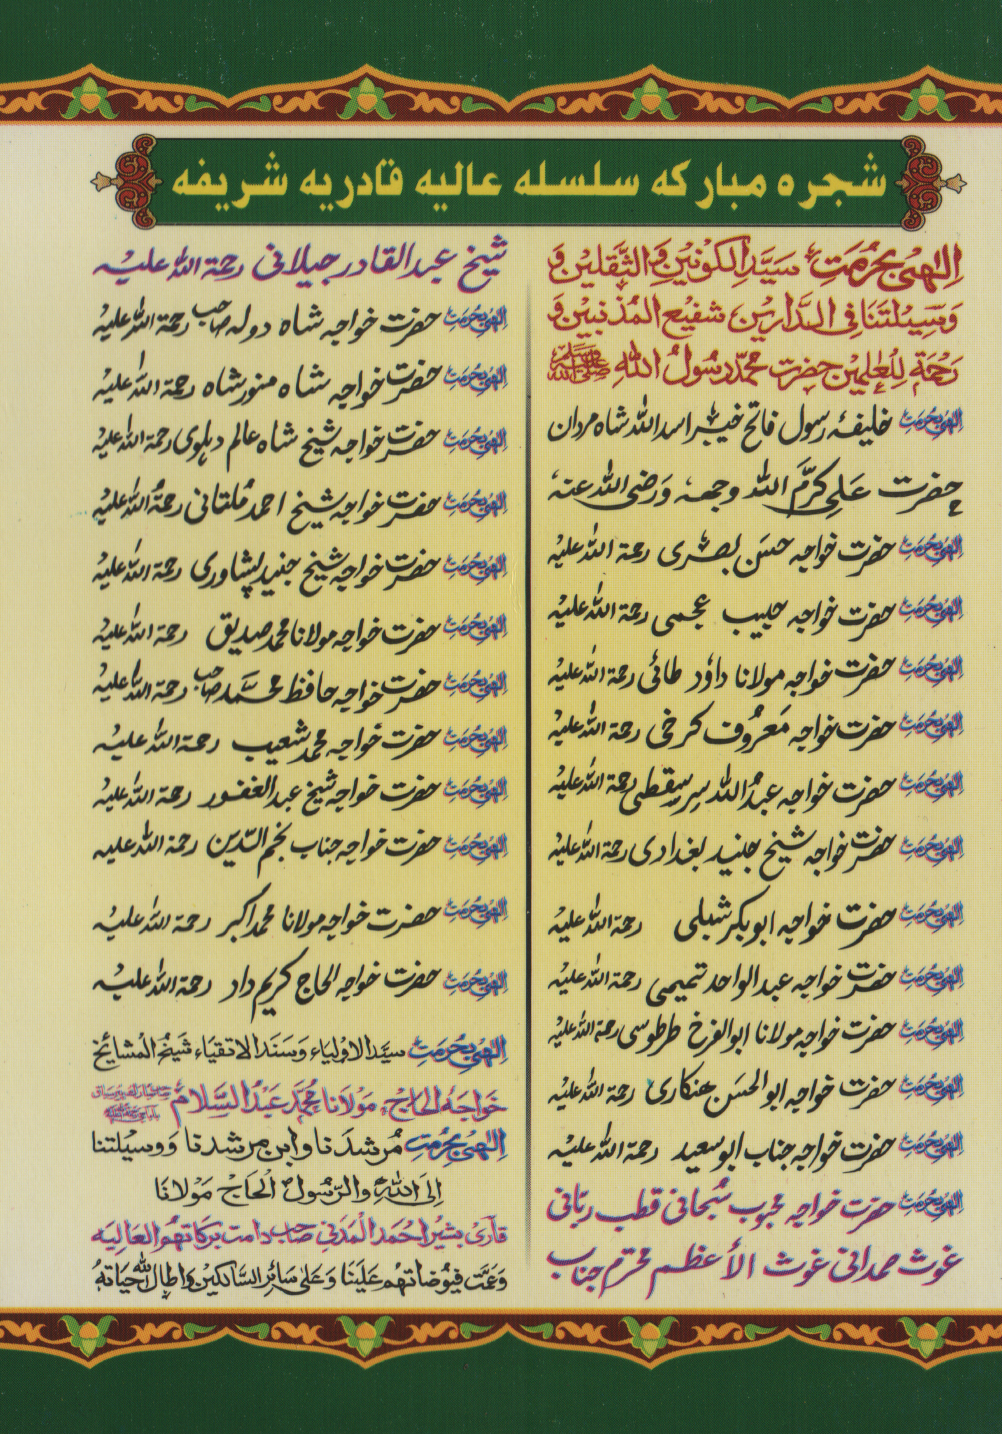 شجره مبارکه سلسله عالیه قادریه شریفه
اِلٰهی بحُرمتِ سیّدِ الکونینِ وَ الثَّقلینِ وَ
وَسِیلَتَنا فِی الدَّارینِ شفیعِ المُذنبینَ وَ
رَحْمَةٍ لِّلعٰلمین حضرت محمّد رسُولُ اللہِ ﷺ
اِلٰهی بحُرمتِ خلیفۂ رسول فاتح خیبر اسد اللہ شاہ مردان
حضرت عَلی کرَّمَ اللہ وجہہ وَرضی اللہ عنہ
اِلٰهی بحُرمتِ حضرت خواجہ حسَن بصری رحمۃ اللہ علیہ
اِلٰهی بحُرمتِ حضرت خواجہ حبیب عجمی رحمۃ اللہ علیہ
اِلٰهی بحُرمتِ حضرت خواجہ مولانا داؤد طائی رحمۃ اللہ علیہ
اِلٰهی بحُرمتِ حضرت خواجہ مَعرُوف کرخی رحمۃ اللہ علیہ
اِلٰهی بحُرمتِ حضرت خواجہ عبدُ اللہ سرسقطی رحمۃ اللہ علیہ
اِلٰهی بحُرمتِ حضرت خواجہ شیخ جنید بغدادی رحمۃ اللہ علیہ
اِلٰهی بحُرمتِ حضرت خواجہ ابوبکر شبلی رحمۃ اللہ علیہ
اِلٰهی بحُرمتِ حضرت خواجہ عبد الواحد تمیمی رحمۃ اللہ علیہ
اِلٰهی بحُرمتِ حضرت خواجہ مولانا ابوالفرخ طرطوسی رحمۃ اللہ علیہ
اِلٰهی بحُرمتِ حضرت خواجہ ابو الحسَن ھنکاری رحمۃ اللہ علیہ
اِلٰهی بحُرمتِ حضرت خواجہ جناب ابوسعید رحمۃ اللہ علیہ
اِلٰهی بحُرمتِ حضرت خواجہ محبوب سُبحانی قطب ربّانی
غوث صمدانی غوث الأعظم محترم جناب
شیخ عبد القادر جیلانی رحمۃ اللہ علیہ
اِلٰهی بحُرمتِ حضرت خواجہ شاہ دولہ صاحب رحمۃ اللہ علیہ
اِلٰهی بحُرمتِ حضرت خواجہ شاہ منور شاہ رحمۃ اللہ علیہ
اِلٰهی بحُرمتِ حضرت خواجہ شیخ شاہ عالم دہلوی رحمۃ اللہ علیہ
اِلٰهی بحُرمتِ حضرت خواجہ شیخ احمد مُلتانی رحمۃُ اللہ علیہ
اِلٰهی بحُرمتِ حضرت خواجہ شیخ جنید پشاوری رحمۃ اللہ علیہ
اِلٰهی بحُرمتِ حضرت خواجہ مولانا محمد صدیق رحمۃ اللہ علیہ
اِلٰهی بحُرمتِ حضرت خواجہ حافظ محمّد صاحب رحمۃ اللہ علیہ
اِلٰهی بحُرمتِ حضرت خواجہ محمد شعیب رحمۃ اللہ علیہ
اِلٰهی بحُرمتِ حضرت خواجہ شیخ عبد الغفور رحمۃ اللہ علیہ
اِلٰهی بحُرمتِ حضرت خواجہ جناب نجم الدّین رحمۃ اللہ علیہ
اِلٰهی بحُرمتِ حضرت خواجہ مولانا محمد اکبر رحمۃ اللہ علیہ
اِلٰهی بحُرمتِ حضرت خواجہ الحاج کریم داد رحمۃ اللہ علیہ
اِلٰهی بحُرمتِ سیّد الاولیاء وَسنَد الاتقیاء شیخُ المشائخ
خواجہ الحاج مَولانا محُمّد عَبدُ السَّلام
اِلٰهی بحُرمتِ مُرشدَنا وابن مرشدنا وَوسیلتنا
اِلی اللہِ والرّسُول الحَاج مَولانا
قاری بشیر احمد المَدنی صاحب دامت برکاتهم العَالیه
وَعمّت فیُوضاتهم عَلَینا وَعَلی سَائر السَّالکین وَاطال اللہ حیاتهُ